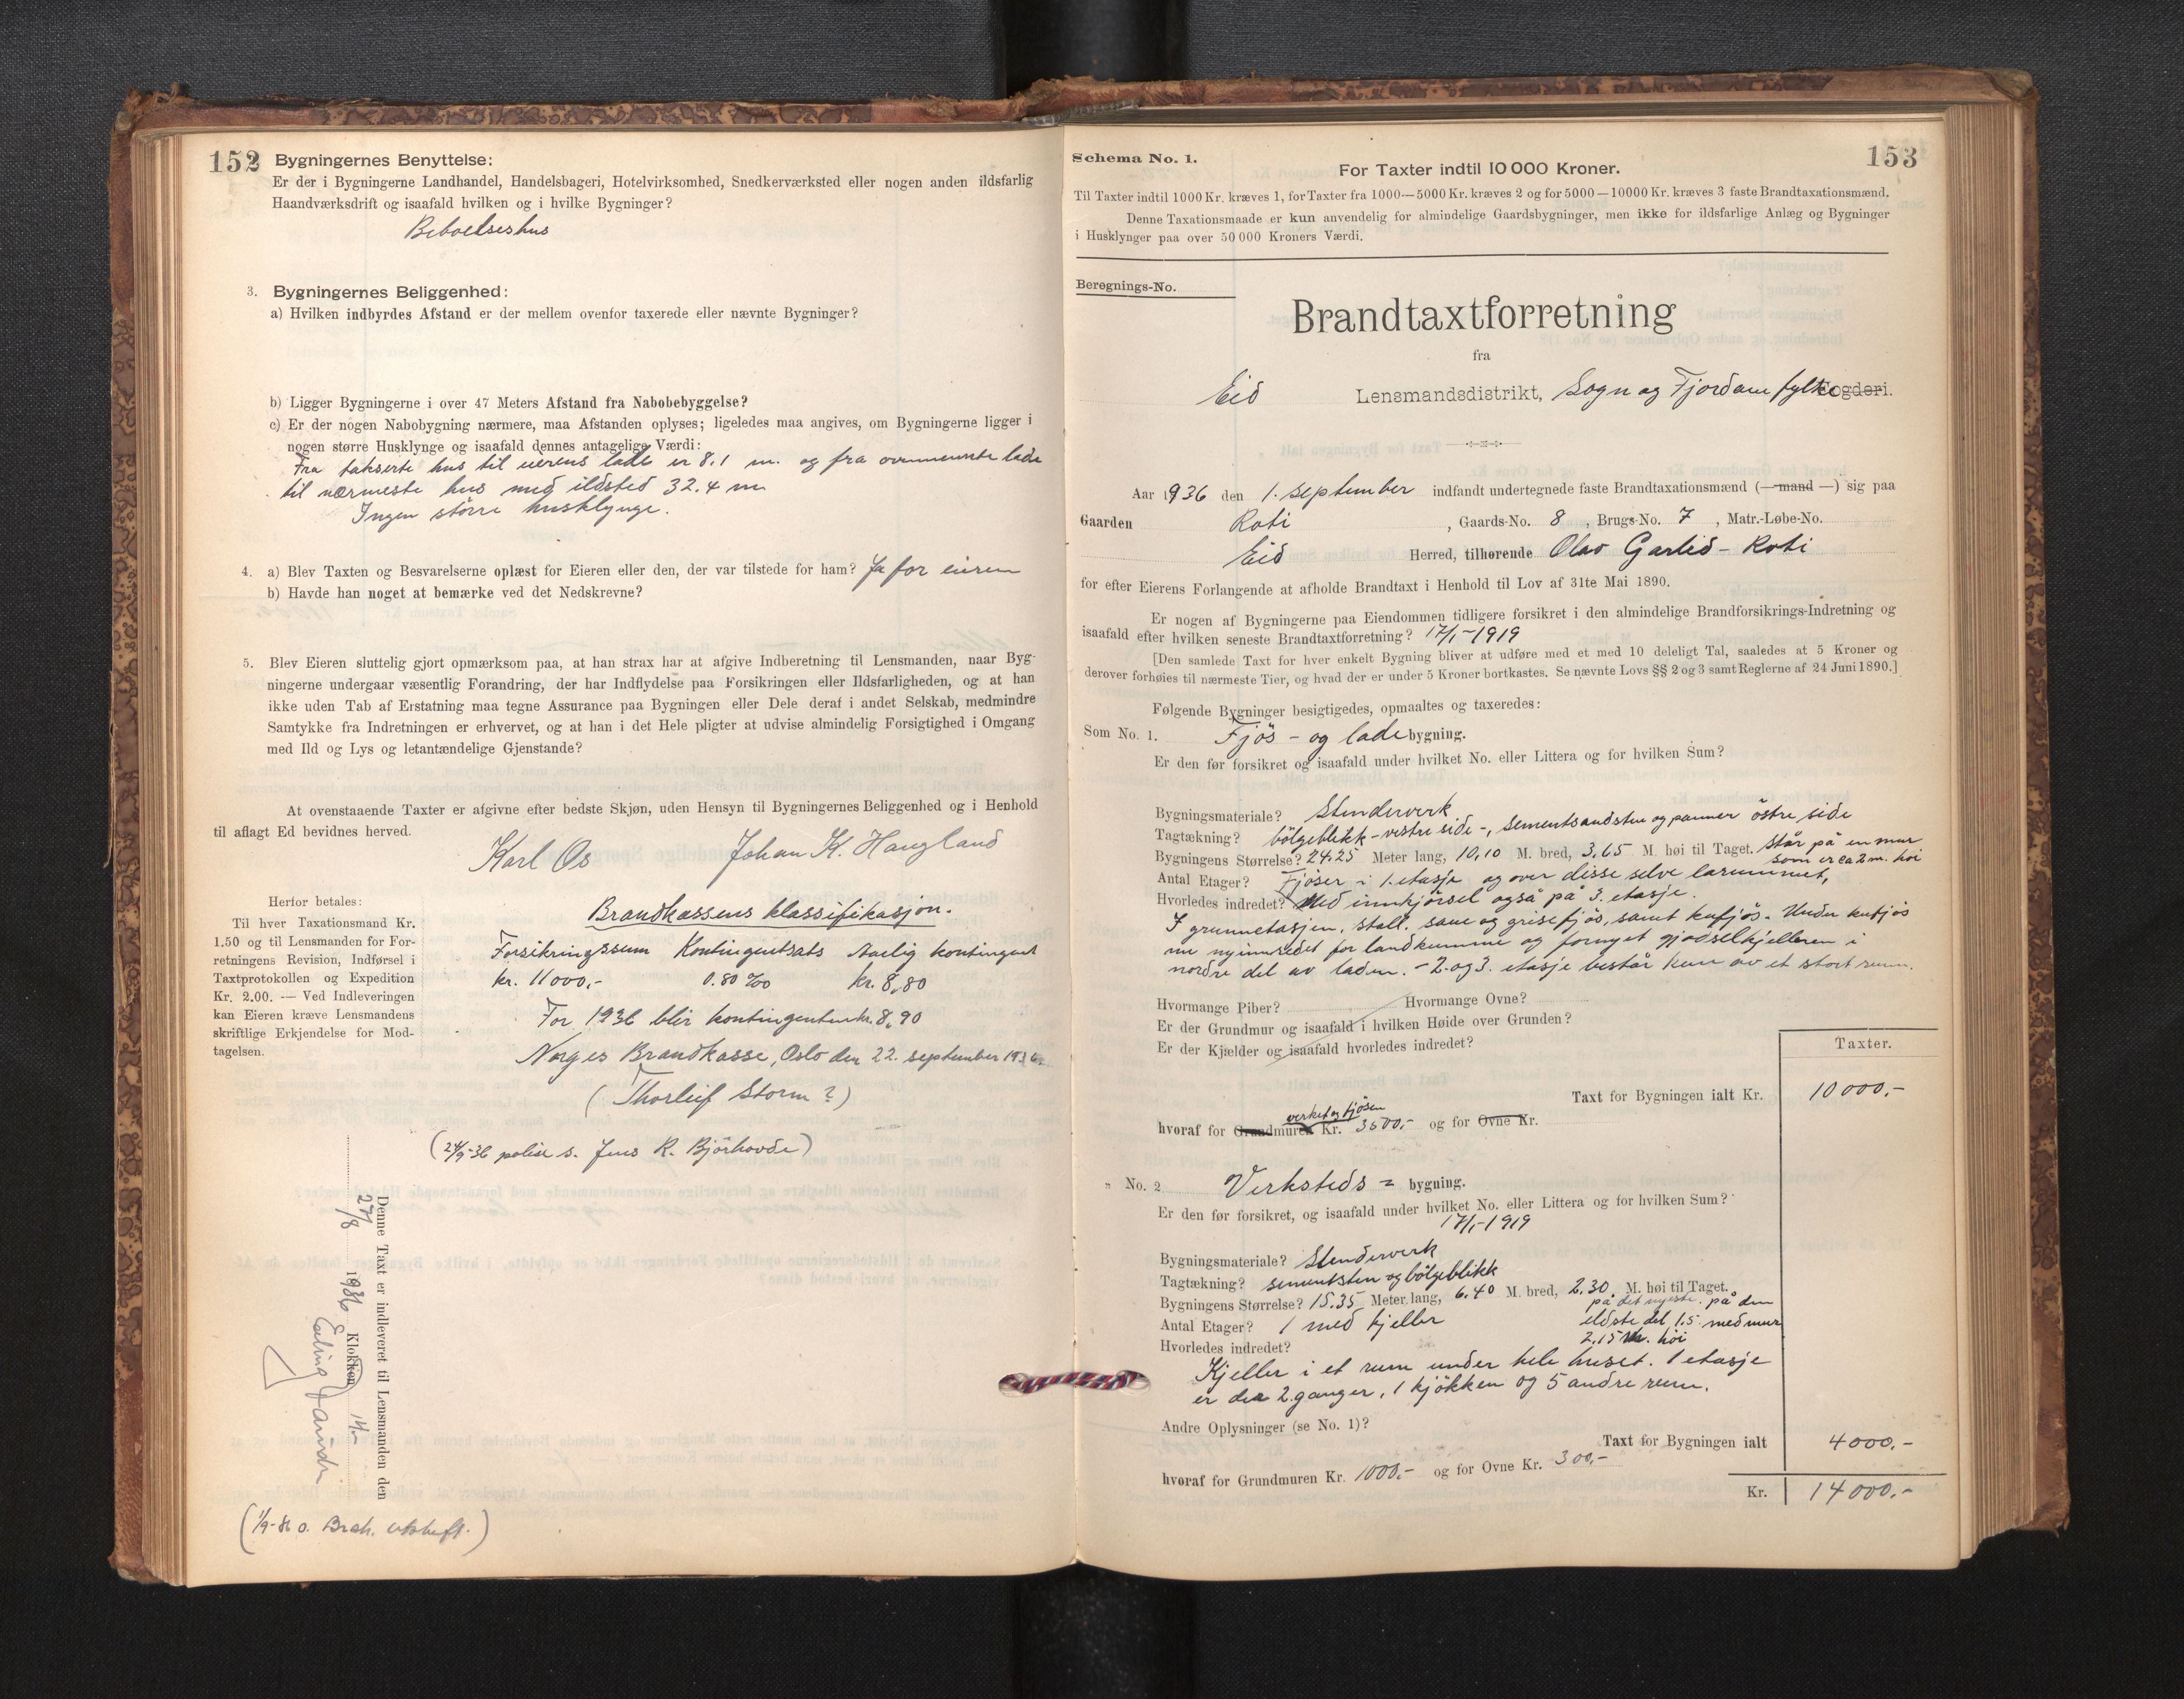 152
Bygningernes Benyttelse:
Er der i Bygningerne Landhandel, Handelsbageri, Hotelvirksomhed, Snedkerværksted eller nogen anden ildsfarlig
Haandværksdrift og isaafald hvilken og i hvilke Bygninger?
Beboelseshus
3. Bygningernes Beliggenhed:
a) Hvilken indbyrdes Afstand er der mellem ovenfor taxerede eller nævnte Bygninger?
b) Ligger Bygningerne i over 47 Meters Afstand fra Nabobebyggelse?
c) Er der nogen Nabobygning nærmere, maa Afstanden oplyses; ligeledes maa angives, om Bygningerne ligger i
nogen større Husklynge og isaafald dennes antagelige Værdi:
Fra takserte hus til eierens lade er 8.1 m. og fra ovennevnte lade
til nærmeste hus med ildsted 32.4 m
Ingen större husklynge.
4. a) Blev Taxten og Besvarelserne oplæst for Eieren eller den, der var tilstede for ham? Ja for eieren
b) Havde han noget at bemærke ved det Nedskrevne?
5. Blev Eieren sluttelig gjort opmærksom paa, at han strax har at afgive Indberetning til Lensmanden, naar Byg-
ningerne undergaar væsentlig Forandring, der har Indflydelse paa Forsikringen eller Ildsfarligheden, og at han
ikke uden Tab af Erstatning maa tegne Assurance paa Bygningen eller Dele deraf i andet Selskab, medmindre
Samtykke fra Indretningen er erhvervet, og at han i det Hele pligter at udvise almindelig Forsigtighed i Omgang
med Ild og Lys og letantændelige Gjenstande?
At ovenstaaende Taxter er afgivne efter bedste Skjøn, uden Hensyn til Bygningernes Beliggenhed og i Henhold
til aflagt Ed bevidnes herved.
Karl Os Johan K. Haugland
Herfor betales:
Til hver Taxationsmand Kr.
1.50 og til Lensmanden for For-
retningens Revision, Indførsel i
Taxtprotokollen og Expedition
Kr. 2.00. — Ved Indleveringen
kan Eieren kræve Lensmandens
skriftlige Erkjendelse for Mod-
tagelsen.
Brandkassens klassifikasjon.
Forsikringssum Kontingentsats Aarlig kontingent
kr. 11000,- 0.80 ‰ kr. 8,80
For 1936 blir kontingenten kr. 8,90
Norges Brandkasse, Oslo den 22. september 1936.
(Thorleif Storm?)
(24/9-36 polise s. Jens R. Bjørhovde)
Denne Taxt er indleveret til Lensmanden den
27/8 1936 Klokken 14-
(1/9-36 o. Brak. utskrft.)
153
Schema No. 1.
For Taxter indtil 10 000 Kroner.
Til Taxter indtil 1000 Kr. kræves 1, for Taxter fra 1000—5000 Kr. kræves 2 og for 5000—10000 Kr. kræves 3 faste Brandtaxationsmænd.
Denne Taxationsmaade er kun anvendelig for almindelige Gaardsbygninger, men ikke for ildsfarlige Anlæg og Bygninger
i Husklynger paa over 50 000 Kroners Værdi.
Beregnings-No.
Brandtaxtforretning
fra
Eid Lensmandsdistrikt, Sogn og Fjordane fylke Fogderi.
Aar 1936 den 1. september indfandt undertegnede faste Brandtaxationsmænd (—mand —) sig paa
Gaarden Roti, Gaards-No. 8, Brugs-No. 7, Matr.-Løbe-No.
Eid Herred, tilhørende Olav Garlid - Roti
for efter Eierens Forlangende at afholde Brandtaxt i Henhold til Lov af 31te Mai 1890.
Er nogen af Bygningerne paa Eiendommen tidligere forsikret i den almindelige Brandforsikrings-Indretning og
isaafald efter hvilken seneste Brandtaxtforretning? 17/1-1919
[Den samlede Taxt for hver enkelt Bygning bliver at udføre med et med 10 deleligt Tal, saaledes at 5 Kroner og
derover forhøies til nærmeste Tier, og hvad der er under 5 Kroner bortkastes. Se nævnte Lovs §§ 2 og 3 samt Reglerne af 24 Juni 1890.]
Følgende Bygninger besigtigedes, opmaaltes og taxeredes:
Som No. 1. Fjös- og lade bygning.
Er den før forsikret og isaafald under hvilket No. eller Littera og for hvilken Sum?
Bygningsmateriale? Stenderverk
Tagtækning? bölgeblikk - vestre side -, sementsandsten og panner östre side
Bygningens Størrelse? 24.25 Meter lang, 10,10 M. bred, 3,65 M. høi til Taget. Står på en mur
som er ca 2 m. höi
Antal Etager? Fjöser i 1. etasje og over disse selve laerummet,
Hvorledes indredet? Med innkjörsel også på 3. etasje.
I grunnetasjen, stall, saue og grisefjös, samt kufjös. Under kufjös
nu nyinnredet for landkumme og fornyet gjödselkjelleren i
nordre del av laden. - 2. og 3. etasje består kun av et stort rum.
Hvormange Piber? Hvormange Ovne?
Er der Grundmur og isaafald i hvilken Høide over Grunden?
Er der Kjælder og isaafald hvorledes indredet?
Taxter.
Taxt for Bygningen ialt Kr. 10 000.-
verket og fjösen
hvoraf for Grundmuren Kr. 3500,- og for Ovne Kr.
" No. 2 Verksteds- bygning.
Er den før forsikret, og isaafald under hvilket No. eller Littera og for hvilken Sum?
17/1-1919
Bygningsmateriale? Stenderverk
Tagtækning? sementsten og bölgeblikk
Bygningens Størrelse? 15.35 Meter lang, 6.40 M. bred, 2,30 M. høi til Taget.
på det nyeste. på den
Antal Etager? 1 med kjeller eldste del 1.5 med mur
Hvorledes indredet? 2,15 m. höi
Kjeller i et rum under hele huset. 1 etasje
er der 2 ganger, 1 kjökken og 5 andre rum.
Andre Oplysninger (se No. 1)?
Taxt for Bygningen ialt 4000,-
hvoraf for Grundmuren Kr. 1000,- og for Ovne Kr. 300,-
Kr. 14000,-